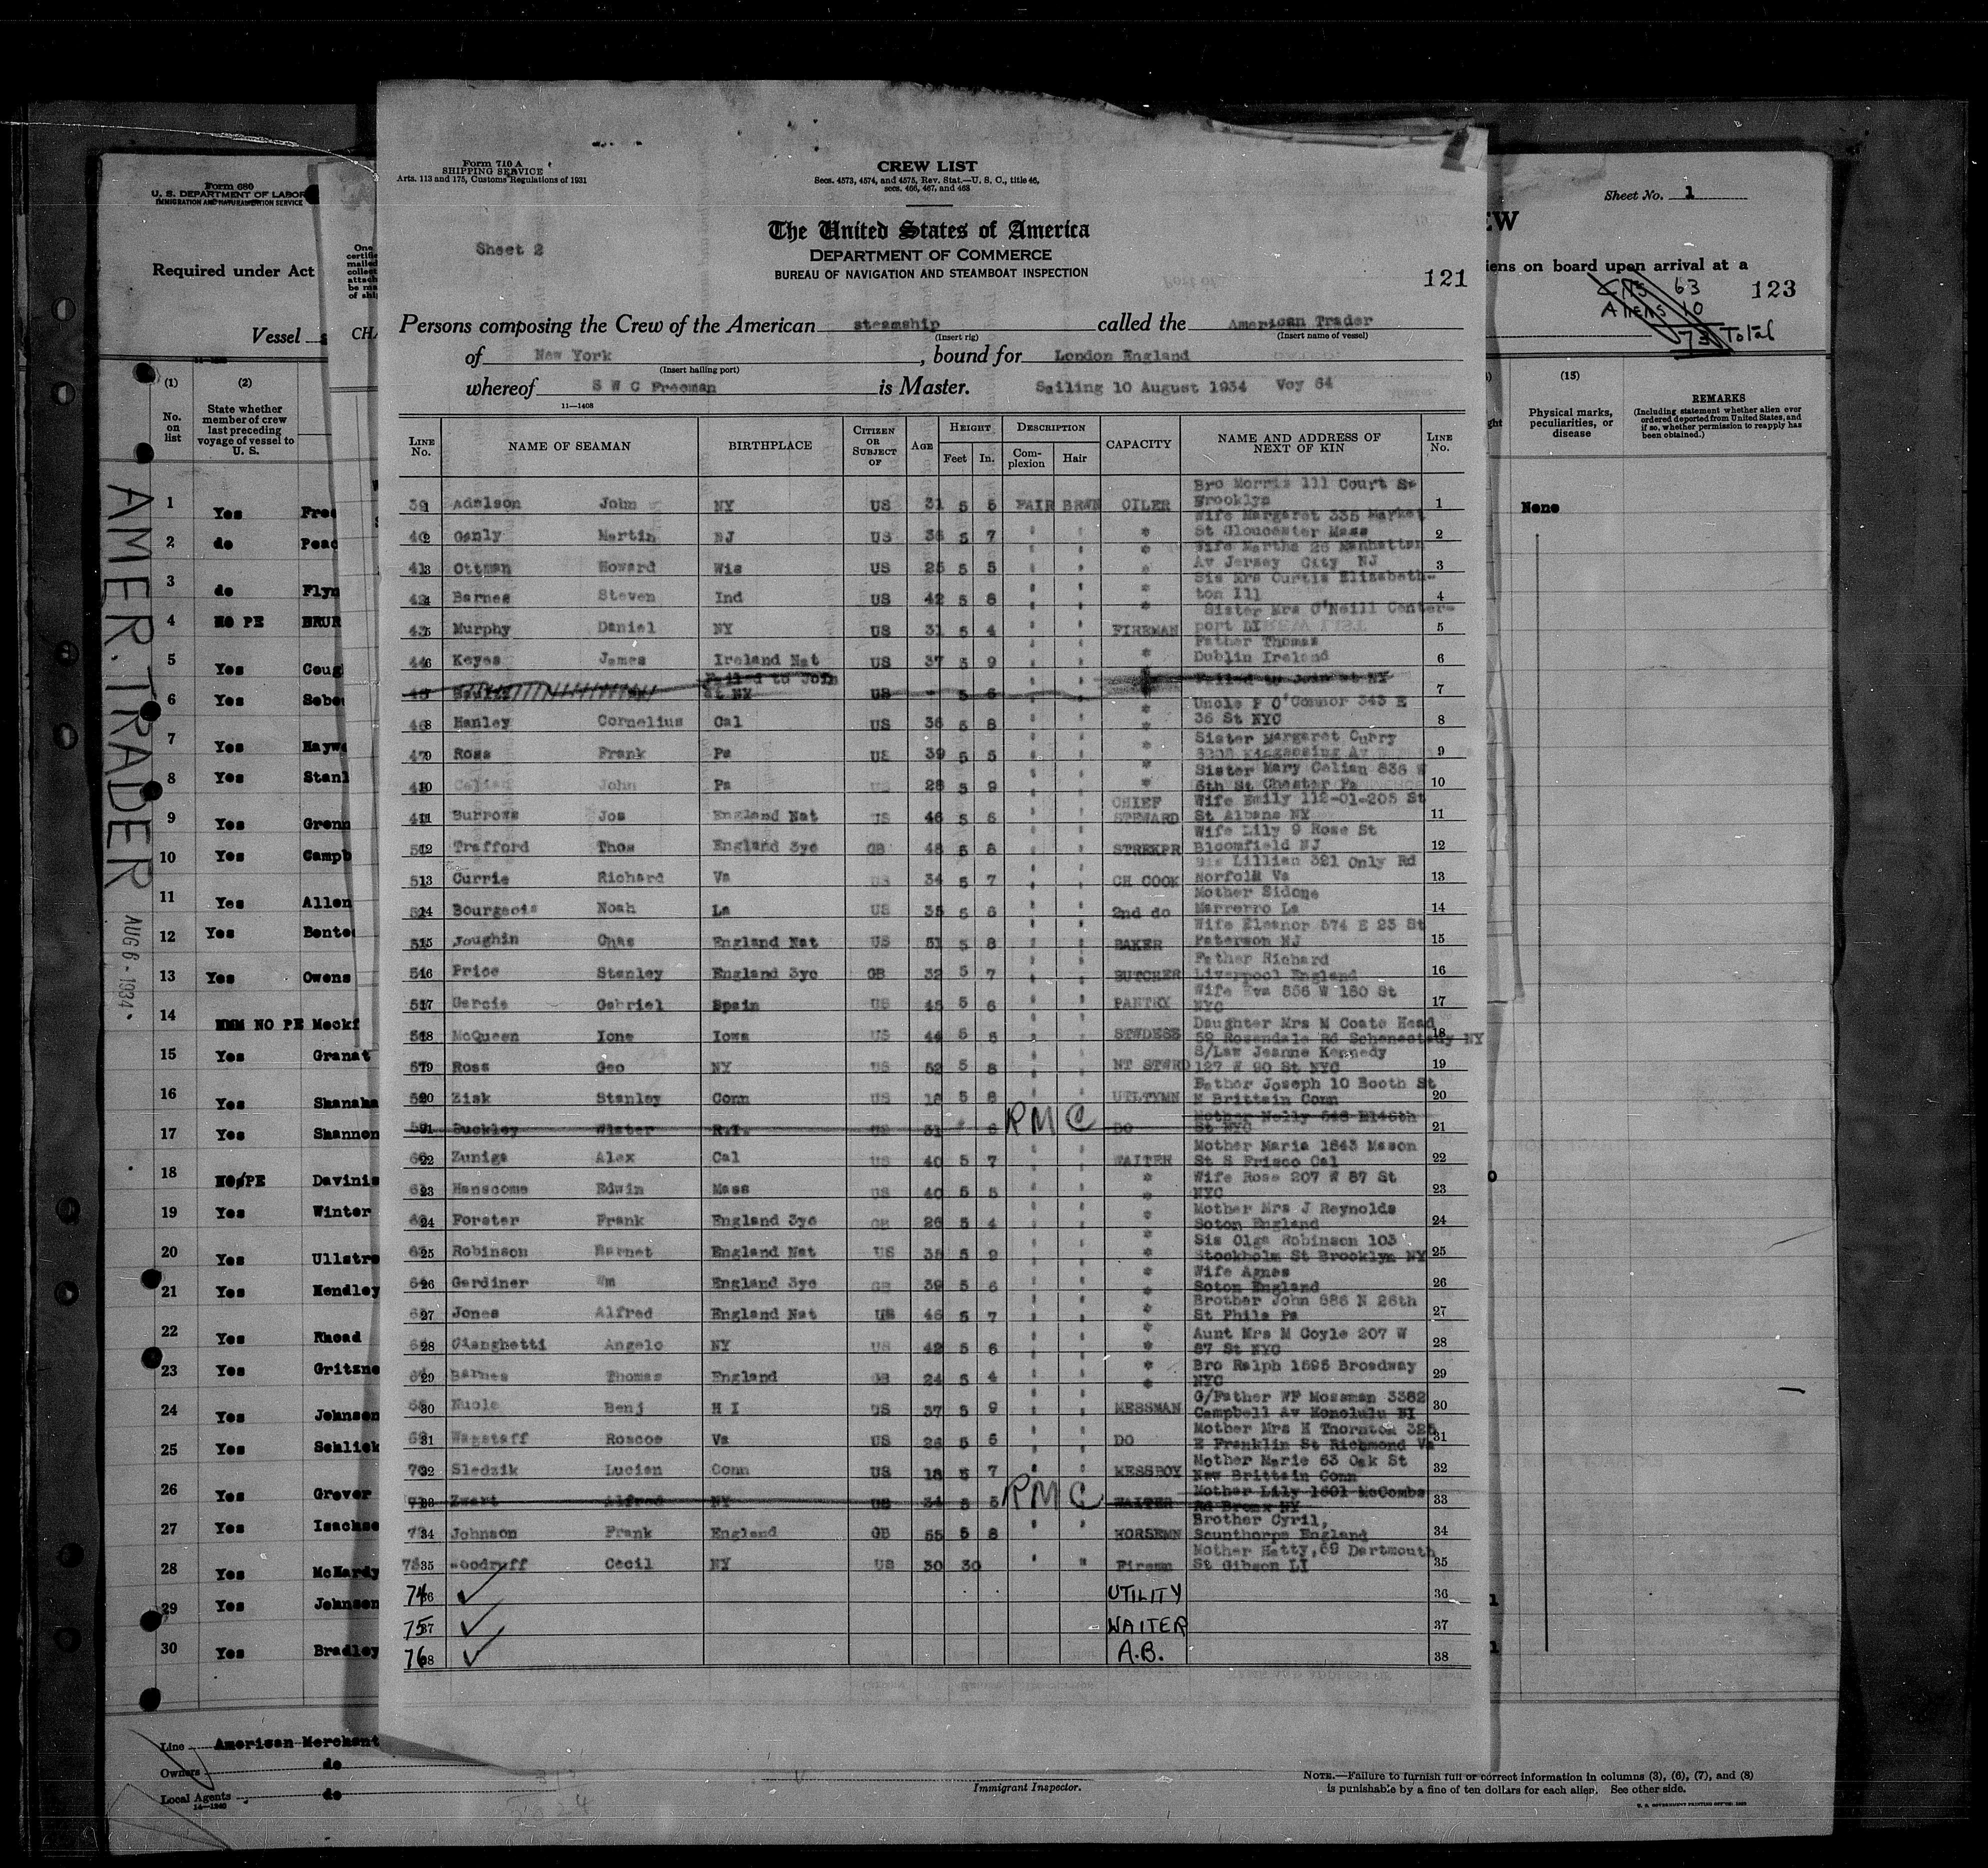 Form 710 A
SHIPPING SERVICE
Arts. 113 and 175, Customs Regulations of 1931
CREW LIST
Secs. 4573, 4574, and 4575, Rev. Stat.—U. S. C., title 46,
secs. 466, 467, and 468
The United States of America
DEPARTMENT OF COMMERCE
BUREAU OF NAVIGATION AND STEAMBOAT INSPECTION
Sheet 2
121
Persons composing the Crew of the American steamship called the American Trader
(Insert rig) (Insert name of vessel)
of New York, bound for London England
(Insert hailing port)
whereof S W C Freeman is Master. Sailing 10 August 1934 Voy 64
11—1408
LINE No. NAME OF SEAMAN BIRTHPLACE CITIZEN OR SUBJECT OF AGE HEIGHT Feet In. DESCRIPTION Complexion Hair CAPACITY NAME AND ADDRESS OF NEXT OF KIN LINE No.
1 Adalson John NY US 31 5 5 FAIR BRWN OILER Bro Morris 111 Court St Brooklyn 1
2 Ganly Martin NJ US 36 5 7 " " * Wife Margaret 335 Market St Gloucester Mass 2
3 Ottman Howard Wis US 25 5 5 " " * Wife Martha 26 Manhattan Av Jersey City NJ 3
4 Barnes Steven Ind US 42 5 8 " " * Sis Mrs Curtis Elizabeth-ton Ill 4
5 Murphy Daniel NY US 31 5 4 " " FIREMAN Sister Mrs O'Neill Center-port LI 5
6 Keyes James Ireland Nat US 37 5 9 " " * Father Thomas Dublin Ireland 6
Failed to Join at NY US 5 6 Failed to Join at NY 7
8 Hanley Cornelius Cal US 36 5 8 " " * Uncle P O'Connor 343 E 36 St NYC 8
9 Ross Frank Pa US 39 5 5 " " * Sister Margaret Curry Kingsessing Av 9
10 Celian John Pa US 28 5 9 " " * Sister Mary Celian 835 W 6th St Chester Pa 10
11 Burrows Jos England Nat US 46 5 6 " " CHIEF STEWARD Wife Emily 112-01-205 St St Albans NY 11
12 Trafford Thos England 3yc GB 48 5 8 " " STREKPR Wife Lily 9 Rose St Bloomfield NJ 12
13 Currie Richard Va US 34 5 7 " " CH COOK Sis Lillian 321 Only Rd Norfolk Va 13
14 Bourgeois Noah La US 35 5 6 " " 2nd do Mother Sidone Marrerro La 14
15 Joughin Chas England Nat US 51 5 8 " " BAKER Wife Eleanor 574 E 23 St Paterson NJ 15
16 Price Stanley England 3yc GB 32 5 7 " " BUTCHER Father Richard Liverpool England 16
17 Garcia Gabriel Spain US 45 5 6 " " PANTRY Wife Eva 556 W 180 St NYC 17
18 McQueen Ione Iowa US 44 5 5 " " STWDESS Daughter Mrs M Coate Head 59 Rosendale Rd Schenectady NY 18
19 Ross Geo NY US 52 5 8 " " NT STWRD S/Law Jeanne Kennedy 127 W 90 St NYC 19
20 Zisk Stanley Conn US 18 5 8 " " UTILTYMN Father Joseph 10 Booth St N Brittain Conn 20
21 Buckley Wister R.I. US 31 " 6 RMC DO Mother Nelly 548 E146th St NYC 21
22 Zuniga Alex Cal US 40 5 7 " " WAITER Mother Maria 1843 Mason St S Frisco Cal 22
23 Hanscome Edwin Mass US 40 5 5 " " * Wife Rose 207 W 87 St NYC 23
24 Forster Frank England 3yc GB 26 5 4 " " * Mother Mrs J Reynolds Soton England 24
25 Robinson Barnet England Nat US 35 5 9 " " * Sis Olga Robinson 103 Stockholm St Brooklyn NY 25
26 Gardiner Wm England 3yc GB 39 5 6 " " * Wife Agnes Soton England 26
27 Jones Alfred England Nat US 46 5 7 " " * Brother John 686 N 26th St Phila Pa 27
28 Gianghetti Angelo NY US 42 5 6 " " * Aunt Mrs M Coyle 207 W 87 St NYC 28
29 Barnes Thomas England GB 24 5 4 " " * Bro Ralph 1595 Broadway NYC 29
30 Nuole Benj H I US 37 5 9 " " MESSMAN G/Father WF Mossman 3362 Campbell Av Honolulu HI 30
31 Wagstaff Roscoe Va US 26 5 5 " " DO Mother Mrs H Thornton 325 E Franklin St Richmond Va 31
32 Sledzik Lucien Conn US 18 5 7 " " MESSBOY Mother Marie 63 Oak St New Brittain Conn 32
33 Zwart Alfred NY US 34 5 5 RMC WAITER Mother Lily 1601 McCombs Rd Bronx NY 33
34 Johnson Frank England GB 55 5 8 " " HORSEMN Brother Cyril, Scunthorpe England 34
7335 Woodruff Cecil NY US 30 30 " " Firemn Mother Hatty,69 Dartmouth St Gibson LI 35
74 ✓ UTILITY 36
75 ✓ WAITER 37
76 ✓ A.B. 38
Form 680
U. S. DEPARTMENT OF LABOR
IMMIGRATION AND NATURALIZATION SERVICE
Required under Act
Vessel
(1) No. on list
(2) State whether member of crew last preceding voyage of vessel to U. S.
1 Yes Free
2 do Peac
3 do Flyn
4 NO PE BRUR
5 Yes Coug
6 Yes Sebe
7 Yes Hayw
8 Yes Stanl
9 Yes Grenn
10 Yes Campb
11 Yes Allen
12 Yes Bente
13 Yes Owens
14 NO PE Meckf
15 Yes Granat
16 Yes Shanaha
17 Yes Shannon
18 NO/PE Davinis
19 Yes Winter
20 Yes Ullstre
21 Yes Hendley
22 Yes Rhead
23 Yes Gritzne
24 Yes Johnson
25 Yes Schlick
26 Yes Grover
27 Yes Isachse
28 Yes McHardy
29 Yes Johnson
30 Yes Bradley
AMER. TRADER
AUG 6 - 1934
Line American Merchant
Owners do
Local Agents do
14—1240
Immigrant Inspector.
Sheet No. 1
EW
iens on board upon arrival at a
123
63
Aliens 10
73 Total
(15) Physical marks, peculiarities, or disease
REMARKS
(Including statement whether alien ever ordered deported from United States, and if so, whether permission to reapply has been obtained.)
None
NOTE.—Failure to furnish full or correct information in columns (3), (6), (7), and (8)
is punishable by a fine of ten dollars for each alien. See other side.
U. S. GOVERNMENT PRINTING OFFICE